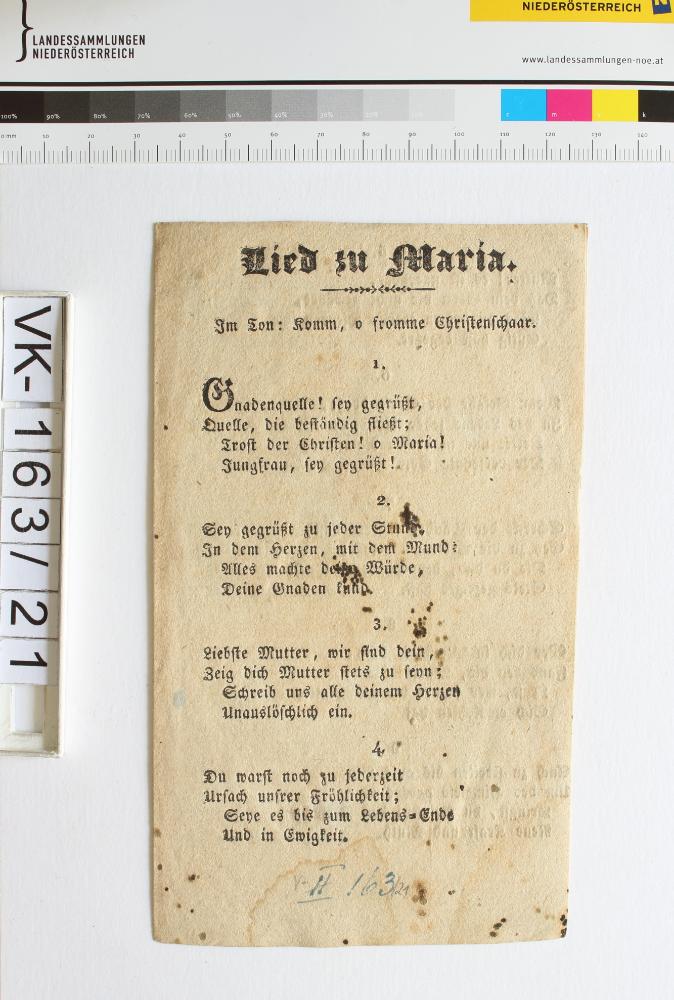 LANDESSAMMLUNGEN
NIEDERÖSTERREICH
NIEDERÖSTERREICH
www.landessammlungen-noe.at
100% 90% 80% 70% 60% 50% 40% 30% 20% 10% c m y k
0 mm 10 20 30 40 50 60 70 80 90 100 110 120 130 140
VK-163/21
Lied zu Maria.
Im Ton: Komm, o fromme Chriſtenſchaar.
1.
Gnadenquelle! ſey gegrüßt,
Quelle, die beſtändig fließt;
Troſt der Chriſten! o Maria!
Jungfrau, ſey gegrüßt!
2.
Sey gegrüßt zu jeder Stund,
In dem Herzen, mit dem Mund:
Alles machte deine Würde,
Deine Gnaden kund.
3.
Liebſte Mutter, wir ſind dein,
Zeig dich Mutter ſtets zu ſeyn;
Schreib uns alle deinem Herzen
Unauslöſchlich ein.
4.
Du warſt noch zu jederzeit
Urſach unſrer Fröhlichkeit;
Seye es bis zum Lebens=Ende
Und in Ewigkeit.
V-II 163/21